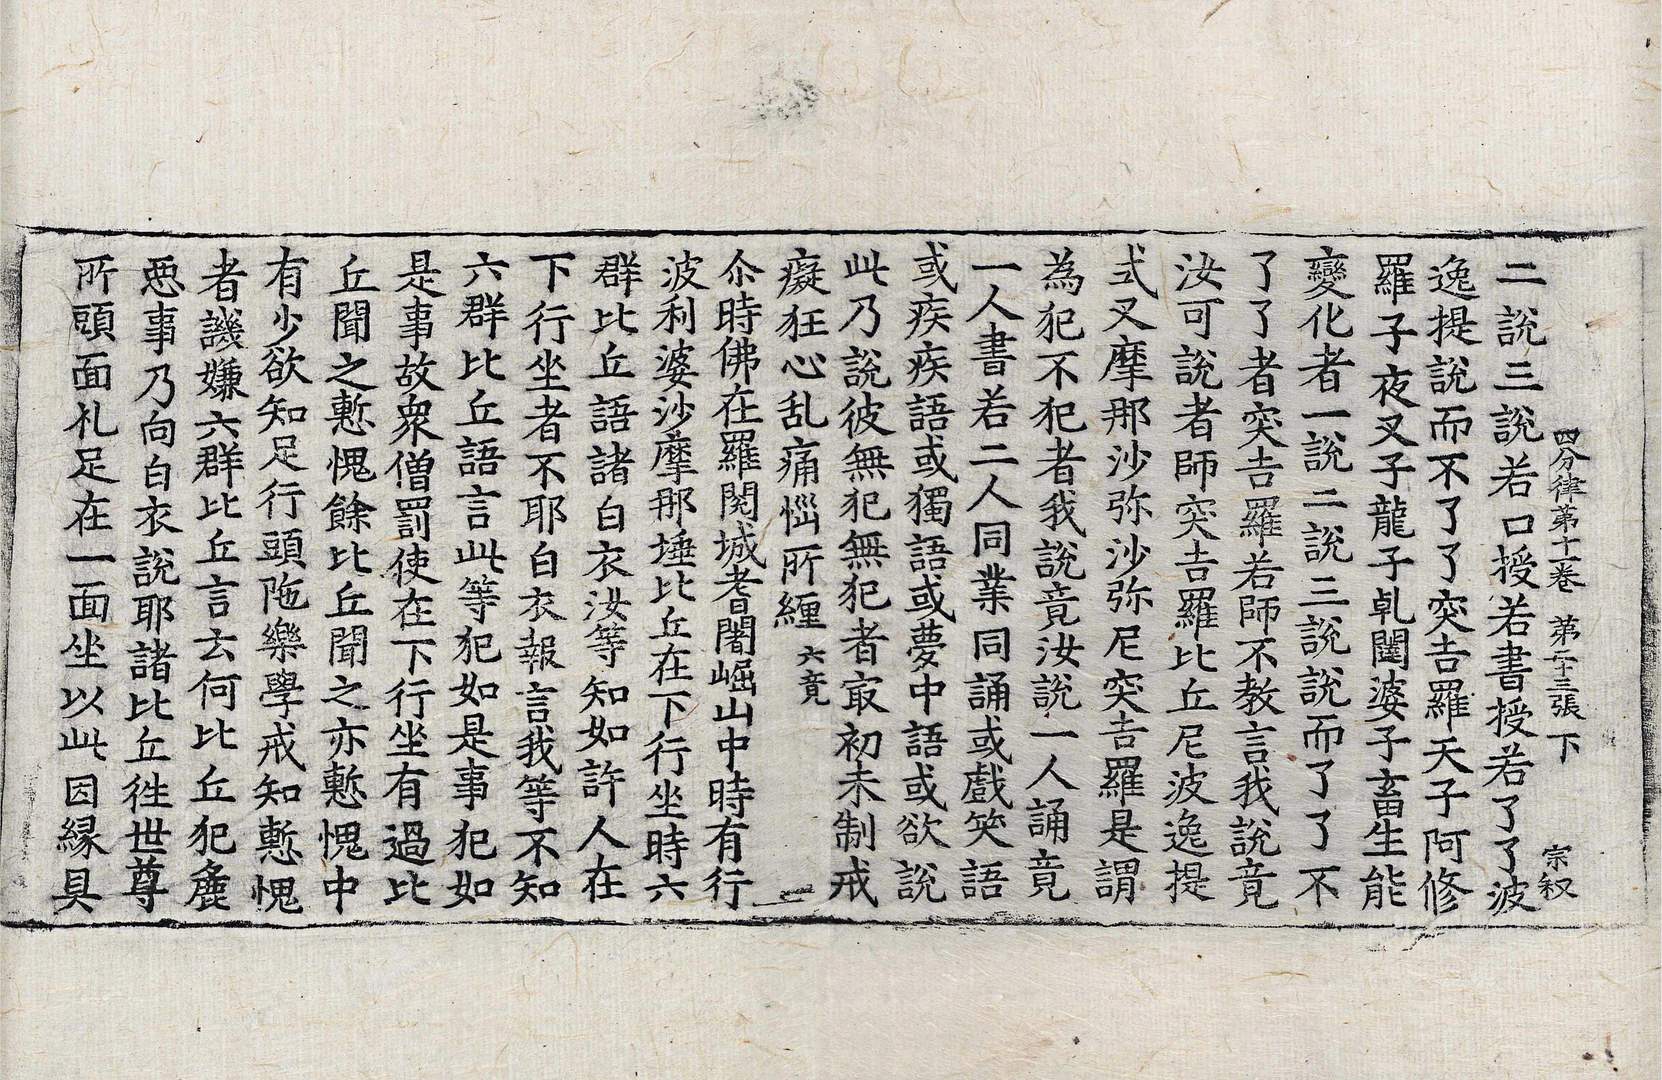 四分律第十一卷 第二十三張 下 宗叙
二說三說若口授若書授若了了波
逸提說而不了了突吉羅天子阿修
羅子夜叉子龍子乹闥婆子畜生能
變化者一說二說三說說而了了不
了了者突吉羅若師不教言我說竟
汝可說者師突吉羅比丘尼波逸提
式叉摩那沙弥沙弥尼突吉羅是謂
為犯不犯者我說竟汝說一人誦竟
一人書若二人同業同誦或戲笑語
或疾疾語或獨語或夢中語或欲說
此乃說彼無犯無犯者㝡初未制戒
癡狂心乱痛惱所纏 六竟
尒時佛在羅閱城耆闍崛山中時有行
波利婆沙摩那埵比丘在下行坐時六
群比丘語諸白衣汝等知如許人在
下行坐者不耶白衣報言我等不知
六群比丘語言此等犯如是事犯如
是事故衆僧罰使在下行坐有過比
丘聞之慙愧餘比丘聞之亦慙愧中
有少欲知足行頭陁樂學戒知慙愧
者譏嫌六群比丘言云何比丘犯麁
惡事乃向白衣說耶諸比丘往世尊
所頭面礼足在一面坐以此因縁具